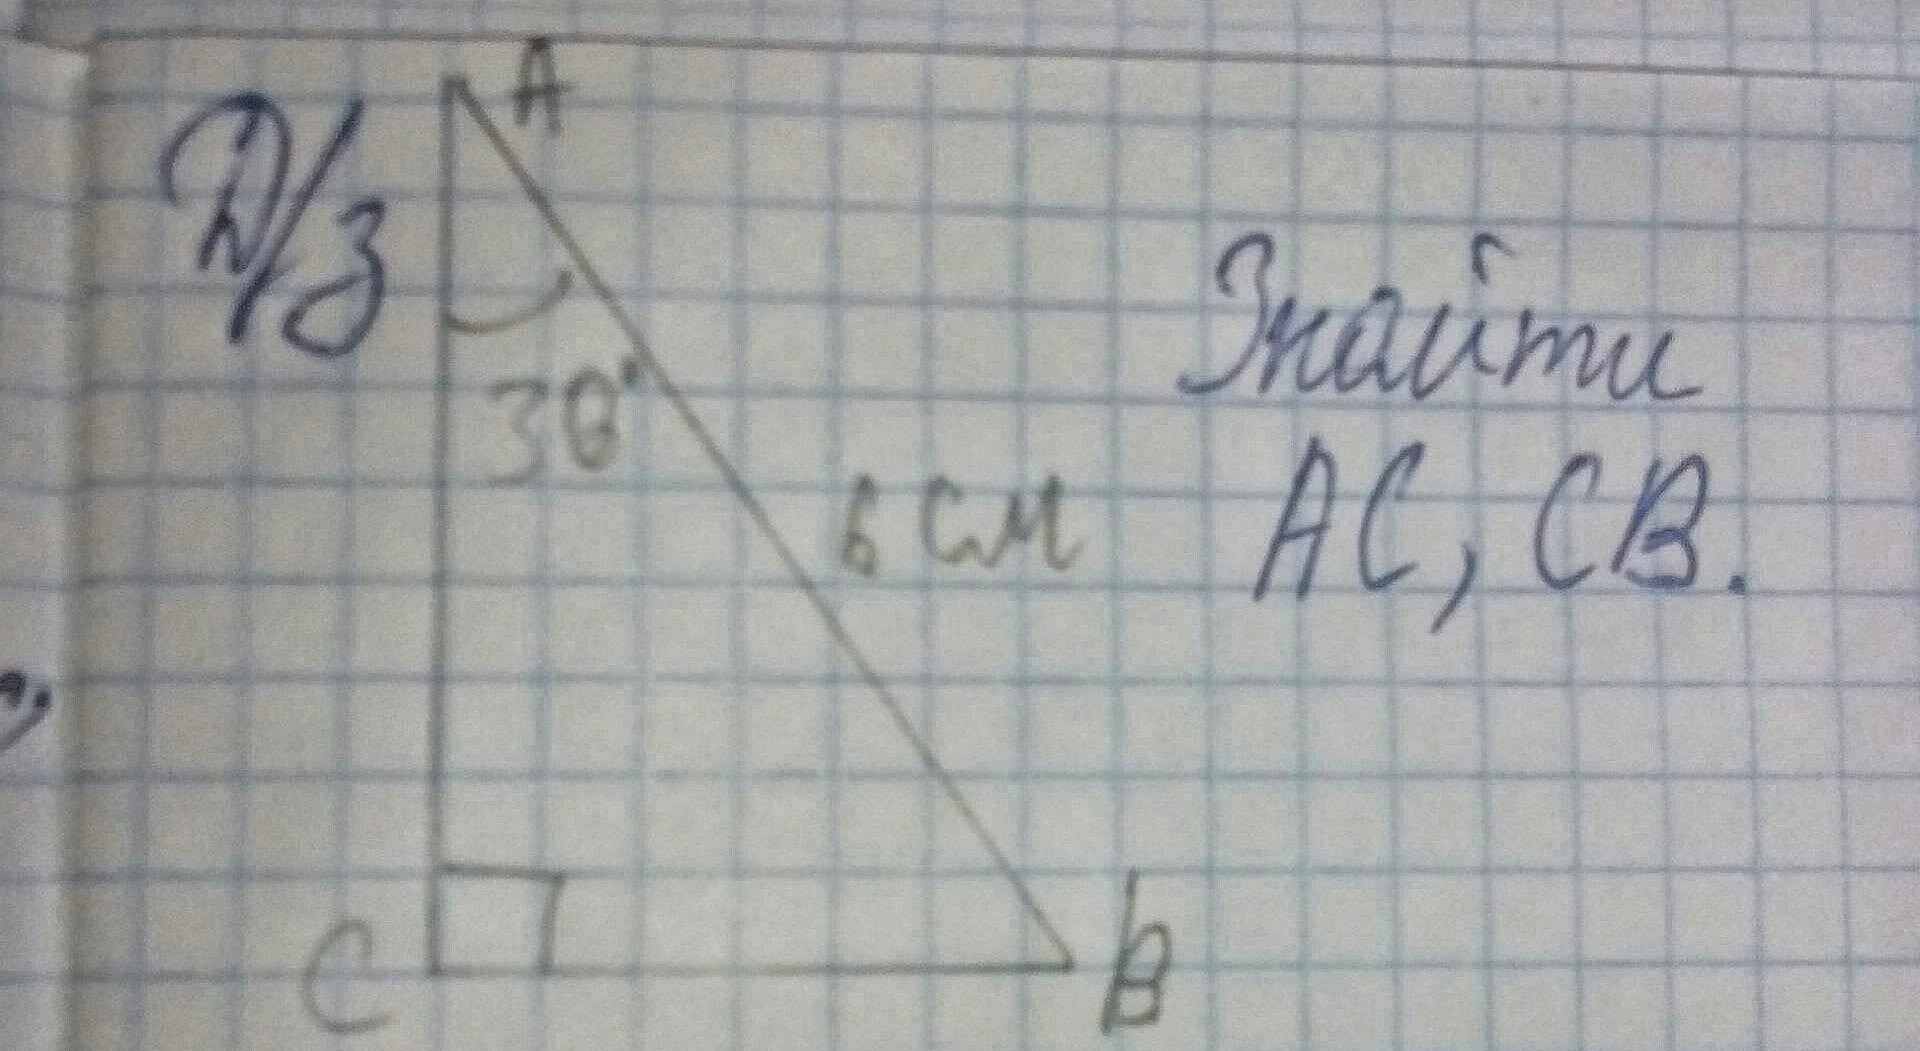 Д/З
A
30°
6 см
C
B
Знайти
AC, CB.